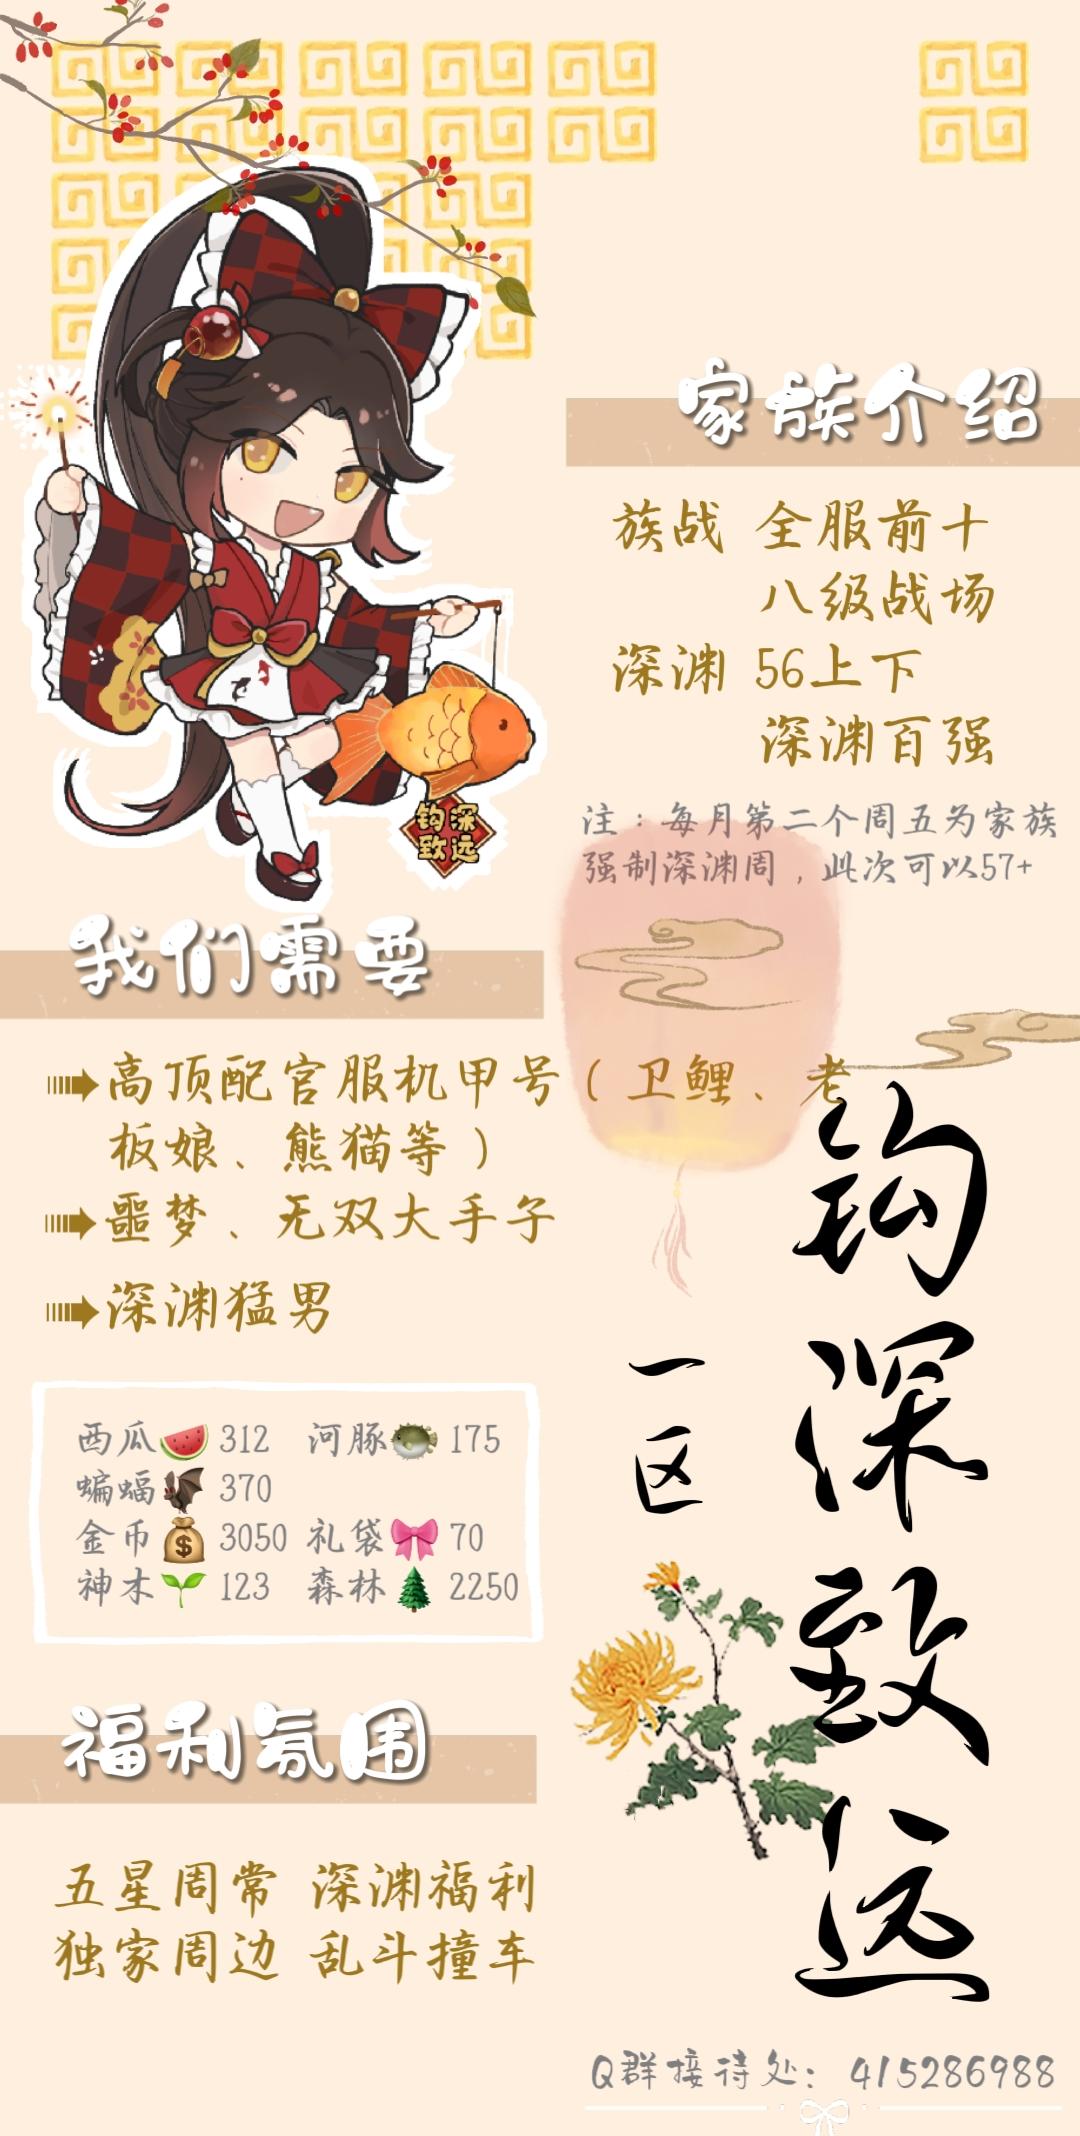 家族介绍
族战 全服前十
八级战场
深渊 56上下
深渊百强
注：每月第二个周五为家族
强制深渊周，此次可以57+
钩深
致远
我们需要
高顶配官服机甲号（卫鲤、老
板娘、熊猫等）
噩梦、无双大手子
深渊猛男
西瓜🍉 312 河豚🐡 175
蝙蝠🦇 370
金币💰 3050 礼袋🎀 70
神木🌱 123 森林🌲 2250
福利氛围
五星周常 深渊福利
独家周边 乱斗撞车
钩深致远
一区
Q群接待处：415286988